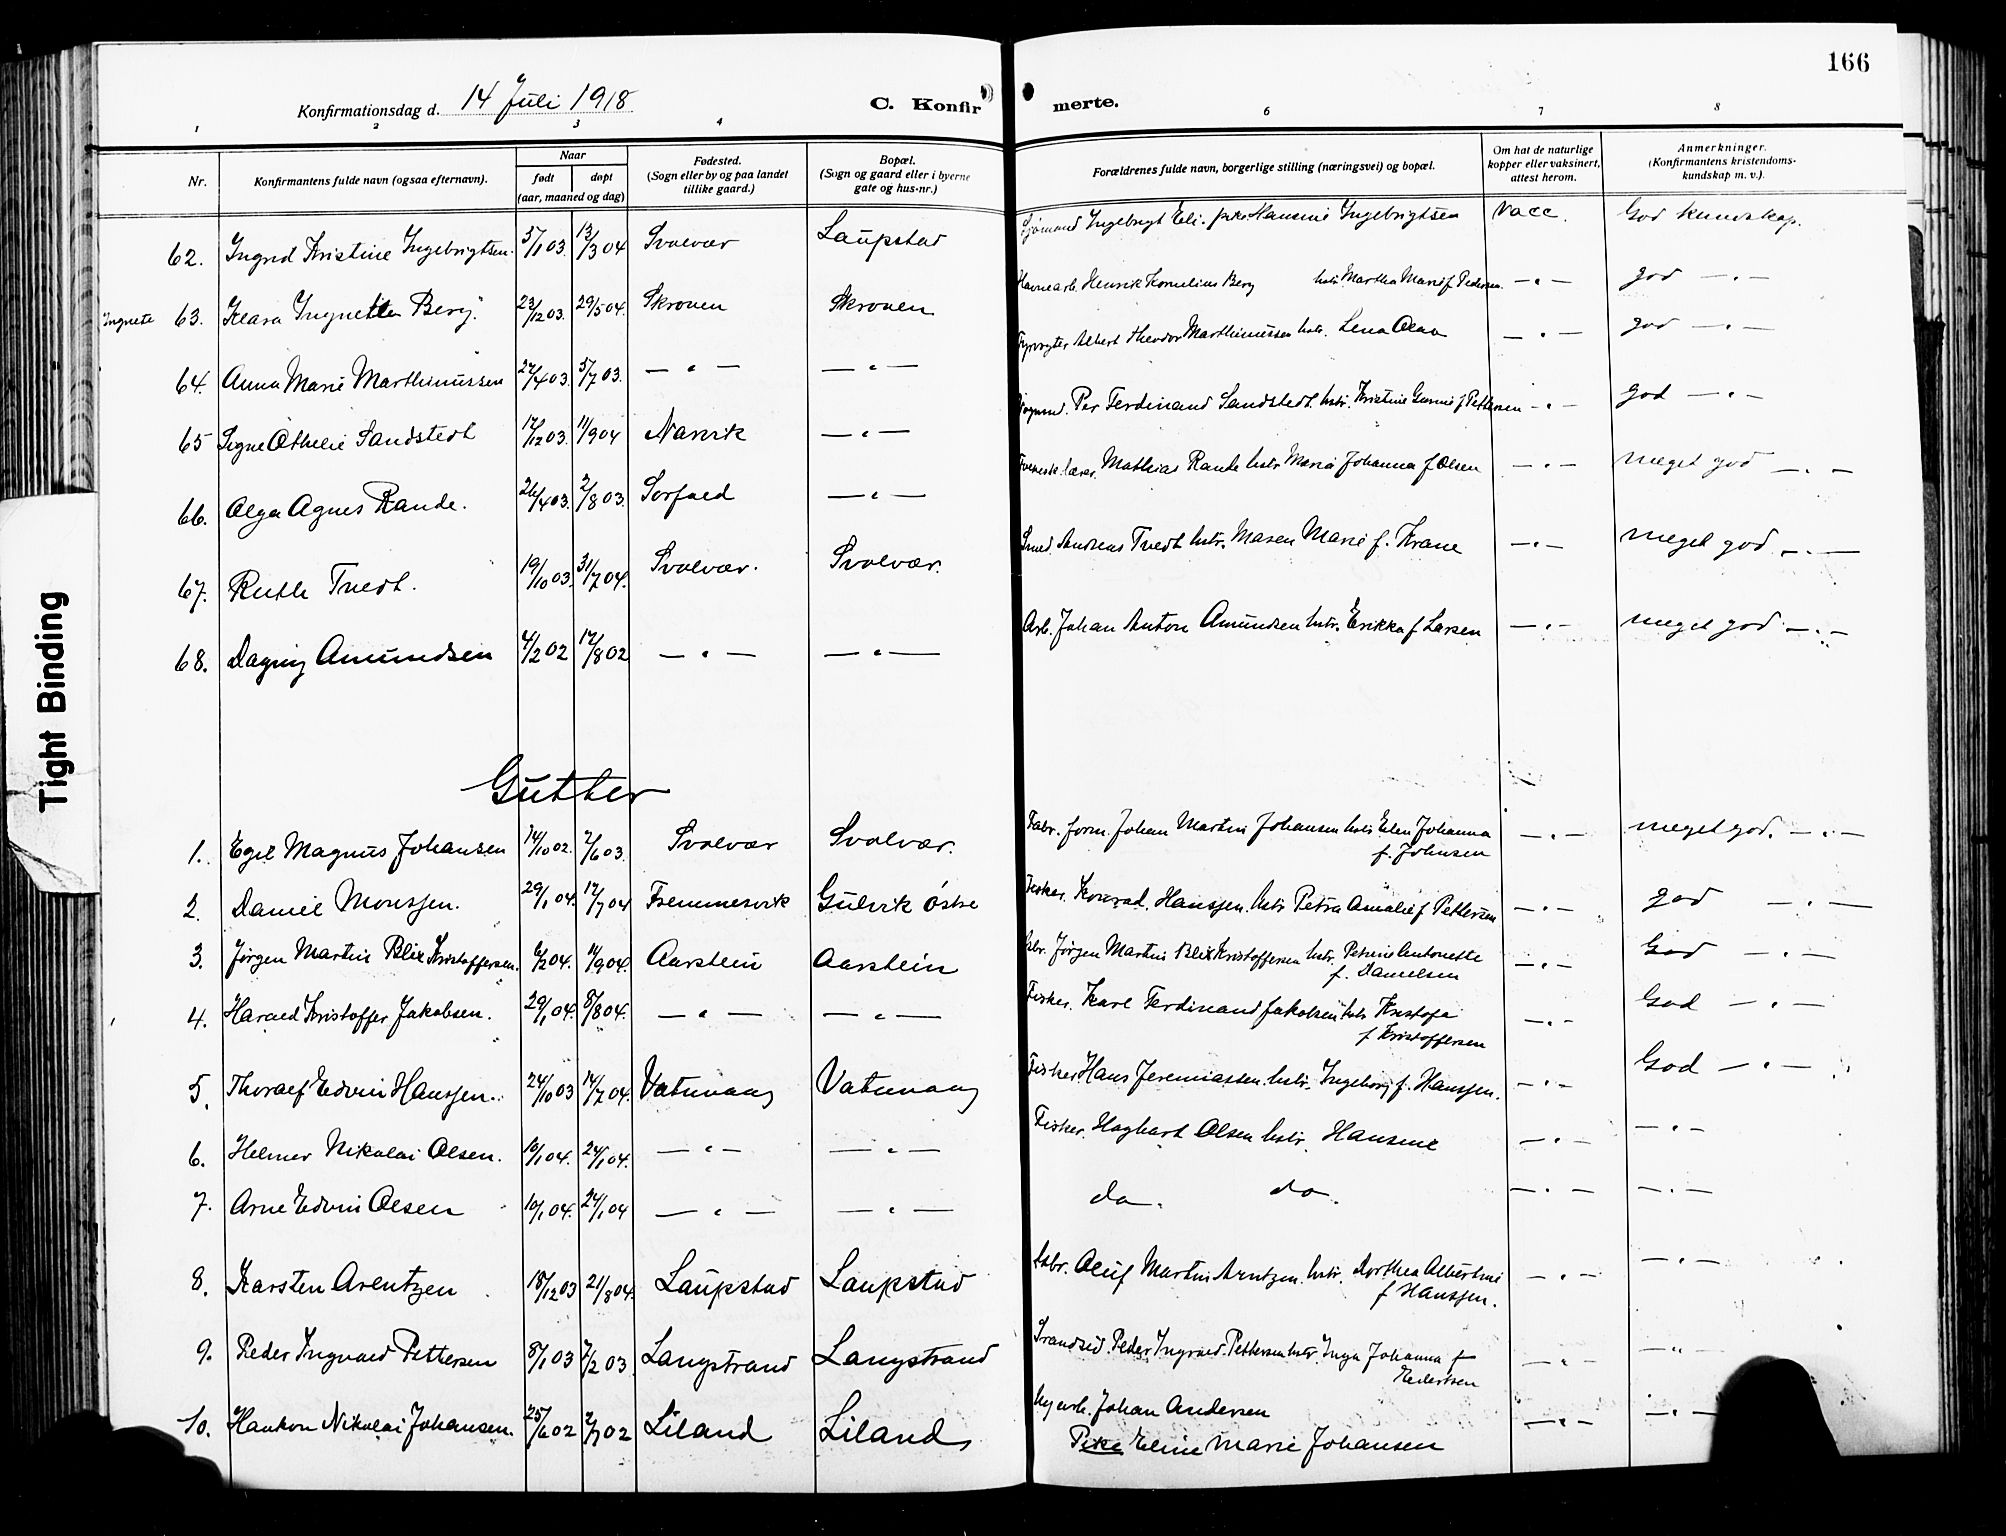 166
Konfirmationsdag d. 14 Juli 1918
C. Konfirmerte.
1 2 3 4 6 7 8
Nr.
Konfirmantens fulde navn (ogsaa efternavn).
Naar
født
døpt
(aar, maaned og dag)
Fødested.
(Sogn eller by og paa landet
tillike gaard.)
Bopæl.
(Sogn og gaard eller i byerne
gate og hus-nr.)
Forældrenes fulde navn, borgerlige stilling (næringsvei) og bopæl.
Om hat de naturlige
kopper eller vaksinert,
attest herom.
Anmerkninger.
(Konfirmantens kristendoms-
kundskap m. v.).
62. Ingrid Kristine Ingebrigtsen. 13/3 04 Svolvær Laupstad Sjømand Ingebrigt Eli. pike Hansine Ingebrigtsen Vacc. God kundskap.
Ingnete 63. Klara Berg. 23/12 03. 29/5 04. Skroven Skroven Havnearb. Henrik Kornelius Berg hstr Martha Marie f Pedersen. — " — god — " —
64. Anna Marie Marthinussen 27/4 03. 5/7 03. — " — — " — Fyrvogter Albert Theodor Marthinussen hstr. Lena Olava — " — god — " —
65 Signe Othelie Sandstedt 17/12 03. 11/9 04 Narvik — " — Per Ferdinand Sandstedt hstr. Kristine f Pettersen — " — god — " —
66. Olga Agnes Rande. 26/4 03. 2/8 03. Sørfold — " — lærer Mathias Rande hstr Maria Johanna f Olsen — " — meget god — " —
67. Ruth Tvedt. 19/10 03. 31/7 04. Svolvær. Svolvær. Smed. Andreas Tvedt hstr. Maren Marie f. Krane — " — meget god — " —
68. Dagny Amundsen 4/2 02 17/8 02 — " — — " — Arb. Johan Anton Amundsen hstr. Erikka f Larsen — " — meget god — " —
Gutter
1. Egil Magnus Johansen 14/10 02. 7/6 03. Svolvær Svolvær. Fabr. form. Johan Martin Johansen hstr Elen Johanna — " — meget god. — " —
f. Johnsen
2. Daniel Monsjen. 29/1 04. 17/7 04 Fremmesvik Gulvik Østre Fisker. Konrad. Hansjen. hstr Petra Amalie f Pettersen — " — god — " —
3. Jørgen Martin Blix Kristoffersen. 04. 11/9 04. Aarstein Aarstein Jørgen Martin Blix Kristoffersen hstr. Petrine Antonette — " — God — " —
f. Danielsen
4. Harald Kristoffer Jakobsen. 29/1 04. 8/8 04. — " — — " — Fisker. Karl Ferdinand Jakobsen hstr Kristofa — " — God — " —
f Kristoffersen
5. Thoralf Edvin Hansjen. 24/10 03 17/7 04. Vatnvaag Vatnvaag Fisker Hans Jeremiassen. hstr. Ingeborg f. Hansjen. — " — God — " —
6. Helmer Nikolai Olsen. 10/1 04. 24/1 04. — " — — " — Fisker. Hagbart Olsen hstr. Hansine — " — — " —
7. Arne Edvin Olsen 10/1 04. 24/1 04 — " — — " — do. do. — " — — " —
8. Karsten Arentzen 18/12 03 21/8 04. Laupstad Laupstad Oluf Martin Arntzen. hstr. Dorthea Albertine — " — — " —
f Hansjen.
9. Peder Ingvald Pettersen 8/1 03 7/2 03. Langstrand Langstrand Strandsid. Peder Ingvald. Pettersen hstr. Inga Johanna f — " — — " —
10. Haakon Nikolai Johansen. 25/6 02 02 Liland Liland Johan Andersen — " — — " —
Pike Eline Marie Johansen
Tight Binding